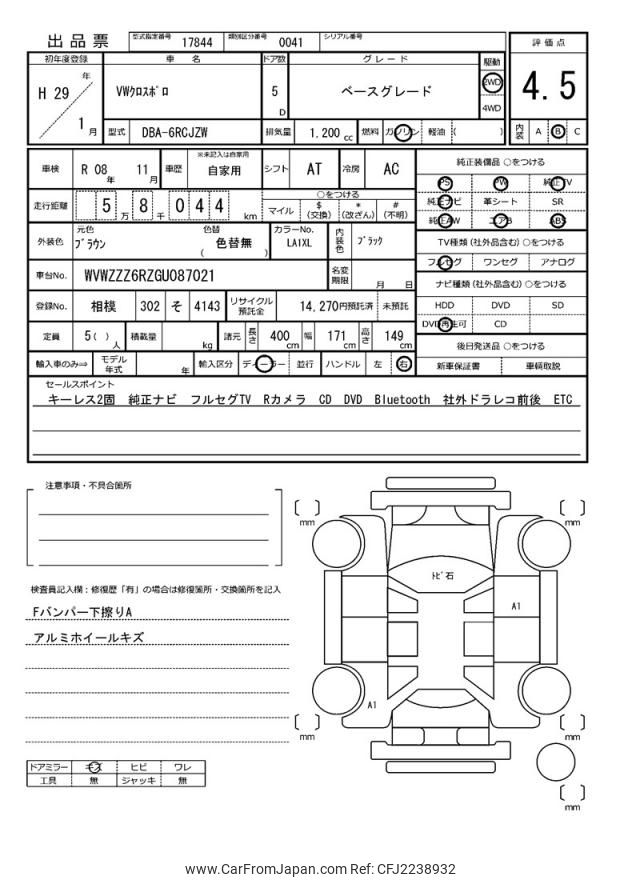 出品票 型式指定番号 17844 類別区分番号 0041 シリアル番号
評価点
4.5
初年度登録 車名 ドア数 グレード 駆動
H 29 年 VWクロスポロ 5 D ベースグレード 2WD
4WD
1 月 型式 DBA-6RCJZW 排気量 1.200 cc 燃料 ガソリン 軽油 ( ) 内装 A B C
車検 R 08 年 11 月 車歴 ※未記入は自家用 自家用 シフト AT 冷房 AC
純正装備品 ○をつける
PS PW 純正TV
純正ナビ 革シート SR
純正AW エアB ABS
走行距離 5 万 8 千 0 4 4 km
○をつける
マイル $ (交換) * (改ざん) # (不明)
外装色 元色 ブラウン 色替 色替無 ( ) カラーNo. LA1XL 内装色 ブラック
TV種類 (社外品含む) ○をつける
フルセグ ワンセグ アナログ
車台No. WVWZZZ6RZGU087021 名変期限 月 日
ナビ種類 (社外品含む) ○をつける
HDD DVD SD
DVD再生可 CD
登録No. 相模 302 そ 4143 リサイクル預託金 14,270円預託済 未預託
定員 5 ( ) 人 積載量 kg 諸元 長さ 400 cm 幅 171 cm 高さ 149 cm
後日発送品 ○をつける
新車保証書 車輌取説
輸入車のみ⇒ モデル年式 年 輸入区分 ディーラー 並行 ハンドル 左 右
セールスポイント
キーレス2固 純正ナビ フルセグTV Rカメラ CD DVD Bluetooth 社外ドラレコ前後 ETC
注意事項・不具合箇所
検査員記入欄:修復歴「有」の場合は修復箇所・交換箇所を記入
Fバンパー下擦りA
アルミホイールキズ
ドアミラー キズ ヒビ ワレ
工具 無 ジャッキ 無
mm
mm
トビ石
A1
A1
mm
mm
mm
www.CarFromJapan.com Ref: CFJ2238932